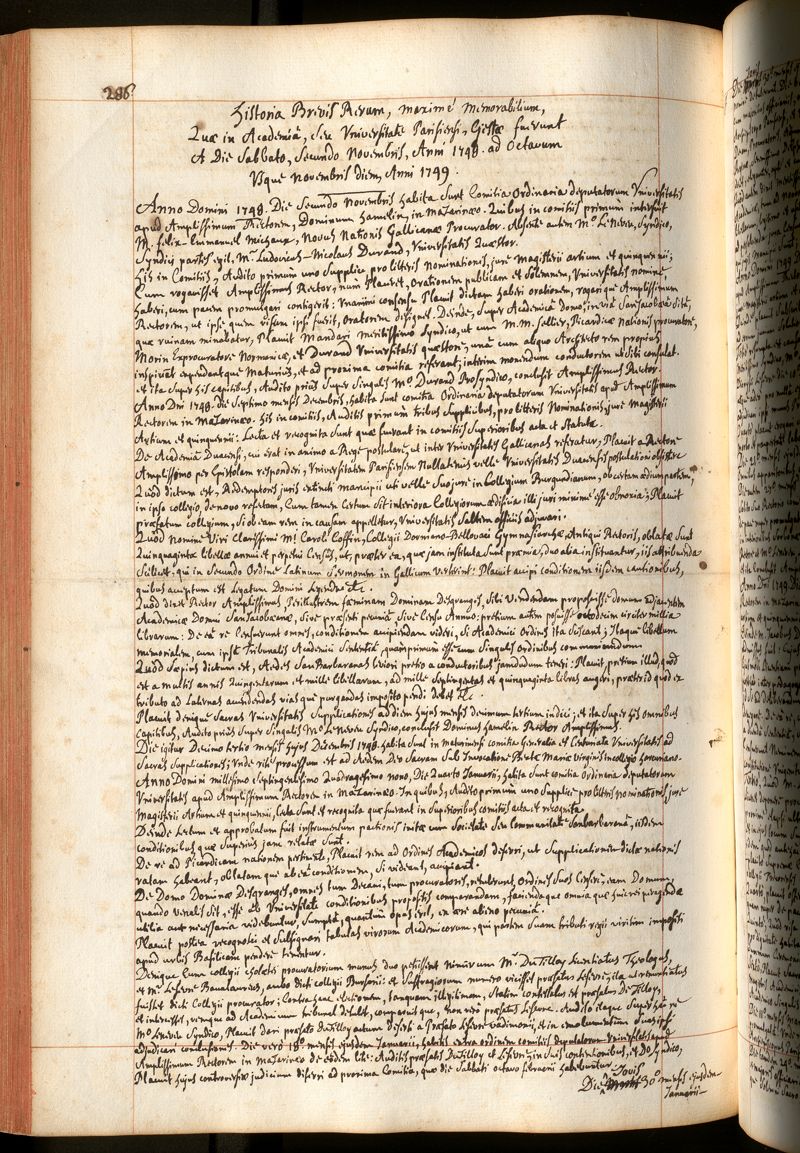 286
Historia Brevis Rerum, maximè Memorabilium,
Quæ in Academiâ, seu Universitate Parisiensi, Gestæ fuerunt
A Die Sabbato, Secundo Novembris, Anni 1748. ad Octavum
Usque Novembris diem, Anni 1749.
Anno Domini 1748. Die Secundo Novembris habita Sunt Comitia Ordinaria deputatorum Universitatis
apud Amplissimum Rectorem, Dominum Hamelin, in Mazarinæo. Quibus in comitiis primùm interfuit
M. felix-Emmanuel Michaux, Novus Nationis Gallicanæ Procurator. Absente autem M.º Le Neveu, Syndico,
Syndici partes egit, M.r Ludovicus-Nicolaus Durand, Universitatis Quæstor.
His in Comitiis, Audito primùm uno Supplice, pro litteris Nominationis, jure Magisterii artium et quinquennii;
Cum rogavisset Amplissimus Rector, num Placeret, Orationem publicam et Solemnem, Universitatis nomine,
haberi, cum pacem promulgari contigerit: Unanimi consensu Placuit dictam haberi orationem, rogarique Amplissimum
Rectorem, ut ipse quem visum ipsi fuerit, Oratorem designet. Deinde, Super Academicâ Domo, in viâ SanJacobæâ Sitâ,
quæ ruinam minabatur, Placuit Mandari Meritissimo Syndico, ut cum M.M. Sellier, Picardicæ Nationis procuratore,
Morin Exprocuratore Normanicæ, et Durand Universitatis quæstore, unà cum aliquo Architecto rem propiùs
inspiciat expendantque Maturiùs, et ad proxima comitia referant; interim monendum conductorem ut Sibi consulat.
et ita Super his capitibus, Audito priùs Super Singulis M.º Durand Prosyndico, conclusit Amplissimus Rector.
Anno Dni 1748. Die Septimo mensis Decembris, habita Sunt comitia Ordinaria deputatorum Universitatis apud Amplissimum
Rectorem in Mazarinæo. His in comitiis, Auditis primùm tribus Supplicibus, pro litteris Nominationis jure Magisterii
Artium et quinquennii: Lecta et recognita Sunt quæ fuerant in comitiis Superioribus acta et Statuta.
De Academiâ Duacensi, cui erat in animo a Rege postulare, ut inter Universitates Gallicanas referatur, Placuit a Rectore
Amplissimo per Epistolam responderi, Universitatem Parisiensem Nullatenùs velle Universitatis Duacensis postulationi obsistere.
Quod dictum est, Redemptores juris extincti mancipii uti velle Suo jure in Collegium Burgundianum, ob certam ædium partem,
in ipso collegio, de novo refectam, Cum tamen certum Sit interiora Collegiorum ædificia illi juri minimè esse obnoxia; Placuit
præfatum collegium, Si ob eam rem in causam appelletur, Universitatis Saltem officiis adjuvari.
Quod Nomine Viri Clarissimi M.i Caroli Coffin, Collegii Dormano-Bellovaci Gymnasiarchæ, Antiqui Rectoris, oblatæ Sunt
Quinquaginta libellæ annui et perpetui Censûs, ut, præter ea, quæ jam instituta Sunt præmia, duo alia instituantur, iis attribuenda
Scilicet, qui in Secundo Ordine Latinum Sermonem in Gallicum verterint: Placuit accipi conditionem iisdem cautionibus,
quibus acceptum est Legatum Domini Lependre &c.
Quod dixit Rector Amplissimus Perillustrem fæminam Dominam Desgranges, Sibi Vendendam proposuisse Domum adjacentem
Academicæ Domui SanJacobææ, Sive præsenti pecuniâ Sive Censu Annuo: pretium autem posuisse octodecim circiter millia
librarum: De eâ re Censuerunt omnes, conditionem accipiendam videri, Si Academici Ordines ita Sciscant; Itaque libellum
memorialem, cum ipsâ Tribunalis Academici Sententiâ, quamprimùm esse cum Singulis Ordinibus communicandum.
Quod Sæpiùs dictum est, Ædes SanBarbaranas leviori pretio a conductoribus jamdudum teneri: Placuit, pretium illud, quod
est a multis annis Quingentarum et mille libellarum, ad mille Septingentas et quinquaginta libras augeri, præter id quod ex
tributo ad Laternas accendendas viasque purgandas imposito pendi debet &c.
Placuit denique Sacras Universitatis Supplicationes ad diem hujus mensis decimum tertium indici; et ita Super his omnibus
Capitibus, Audito priùs Super Singulis M.º Le Neveu Syndico, conclusit Dominus Hamelin Rector Amplissimus.
Die igitur Decimo tertio mensis hujus Decembris 1748. habita Sunt in Maturinensi comitia Generalia et Centuriata Universitatis ad
Sacras Supplicationes; Unde ritè processum est ad Ædem Deo Sacram Sub Invocatione Beatæ Mariæ Virginis in collegio Harcuriano.
Anno Domini millesimo Septingentesimo Quadragesimo nono, Die Quarto Januarii, habita Sunt comitia Ordinaria deputatorum
Universitatis apud Amplissimum Rectorem in Mazarinæo. In quibus, Audito primùm uno Supplice pro litteris nominationis, jure
Magisterii Artium et quinquennii, Lecta Sunt et recognita quæ fuerant in Superioribus comitiis acta et recognita.
Deinde Lectum et approbatum fuit instrumentum pactionis initæ cum Societate Seu Communitate Sanbarbaranâ, iisdem
conditionibus quæ Superiùs jam relatæ Sunt.
De re ad Picardicam nationem pertinente, Placuit rem ad Ordines Academicos deferri, ut Supplicationem dictæ nationis
ratam habeant, oblatamque ab eâ conditionem, Si videant, accipiant.
De Domo Dominæ Desgranges, omnes tum Decani, tum procuratores, retulerunt, Ordines Suos Censere; eam Domum,
quando venalis Sit, esse ab Universitate conditionibus propositis comparandam, faciendaque omnia quæ huic rei peragendæ
utilia aut necessaria videbuntur, Sumptâ, quantùm opus erit, in ære alieno pecuniâ.
Placuit postea recognosci et Subsignari tabulas virorum Academicorum, qui partem Suam tributi regii viritim impositi
apud urbis Basilicam pendere tenentur.
Denique Cum collegii Choletei procuratorium munus duo petiissent nimirum M.r DuTilloy Licentiatus Theologus,
et M.r Lefevre Baccalaureus, ambo dicti collegii Bursarii: et Suffragiorum numero vicisset præfatus Lefevre; ita ut renuntiatus
fuisset dicti Collegii procurator; Contra hanc electionem, tanquam illegitimam, Statim contestatus est præfatus DuTilloy,
et intercessit, remque ad Academicum tribunal detulit, comparuitque, non verò præfatus Lefevre. Audito itaque Super hâc re
M.º Leneveu Syndico, Placuit dari præfato DuTilloy actum deserti a præfato Lefevre vadimonii, et in emolumentum Suas ipsi
adjudicari conclusiones. Die verò 18.º mensis ejusdem Januarii, habitis extra ordinem comitiis deputatorum Universitatis apud
Amplissimum Rectorem in Mazarinæo de eâdem lite: Auditis præfatis DuTilloy et Lefevre, in Suis contentionibus, et D.º Syndico,
Placuit hujus controversiæ judicium differri ad proxima Comitia, quæ die Sabbati octavo februarii habebuntur.
Die Jovis 30.º mensis ejusdem
Januarii